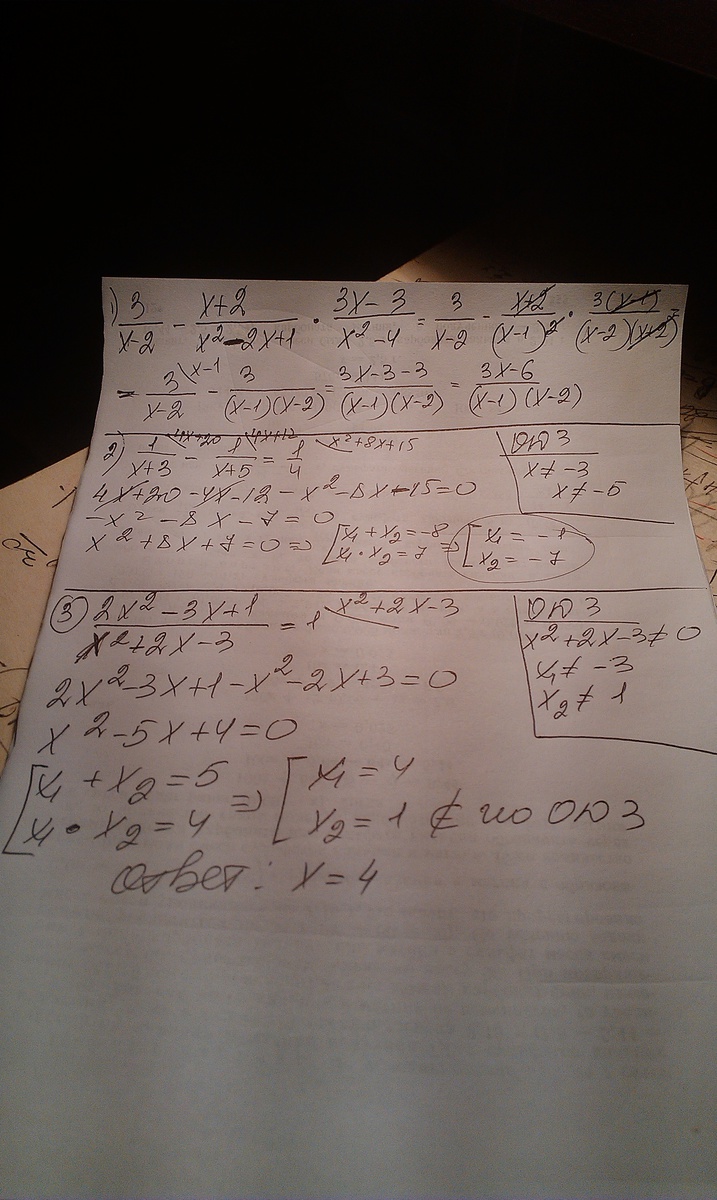 1) 3/(x-2) - (x+2)/(x²-2x+1) · (3x-3)/(x²-4) = 3/(x-2) - (x+2)/(x-1)² · 3(x-1)/((x-2)(x+2)) =
= 3/(x-2) \x-1 - 3/((x-1)(x-2)) = (3x-3-3)/((x-1)(x-2)) = (3x-6)/((x-1)(x-2))
2) 1/(x+3) \4x+20 - 1/(x+5) \4x+12 = 1/4 \x²+8x+15
ОДЗ
x≠-3
x≠-5
4x+20-4x-12-x²-8x-15=0
-x²-8x-7=0
x²+8x+7=0 => [x₁+x₂=-8 => [x₁=-1
x₁·x₂=7 x₂=-7
3) (2x²-3x+1)/(x²+2x-3) = 1 \x²+2x-3
ОДЗ
x²+2x-3≠0
x₁≠-3
x₂≠1
2x²-3x+1-x²-2x+3=0
x²-5x+4=0
[x₁+x₂=5 => [x₁=4
x₁·x₂=4 x₂=1 ∉ по ОДЗ
Ответ: x=4